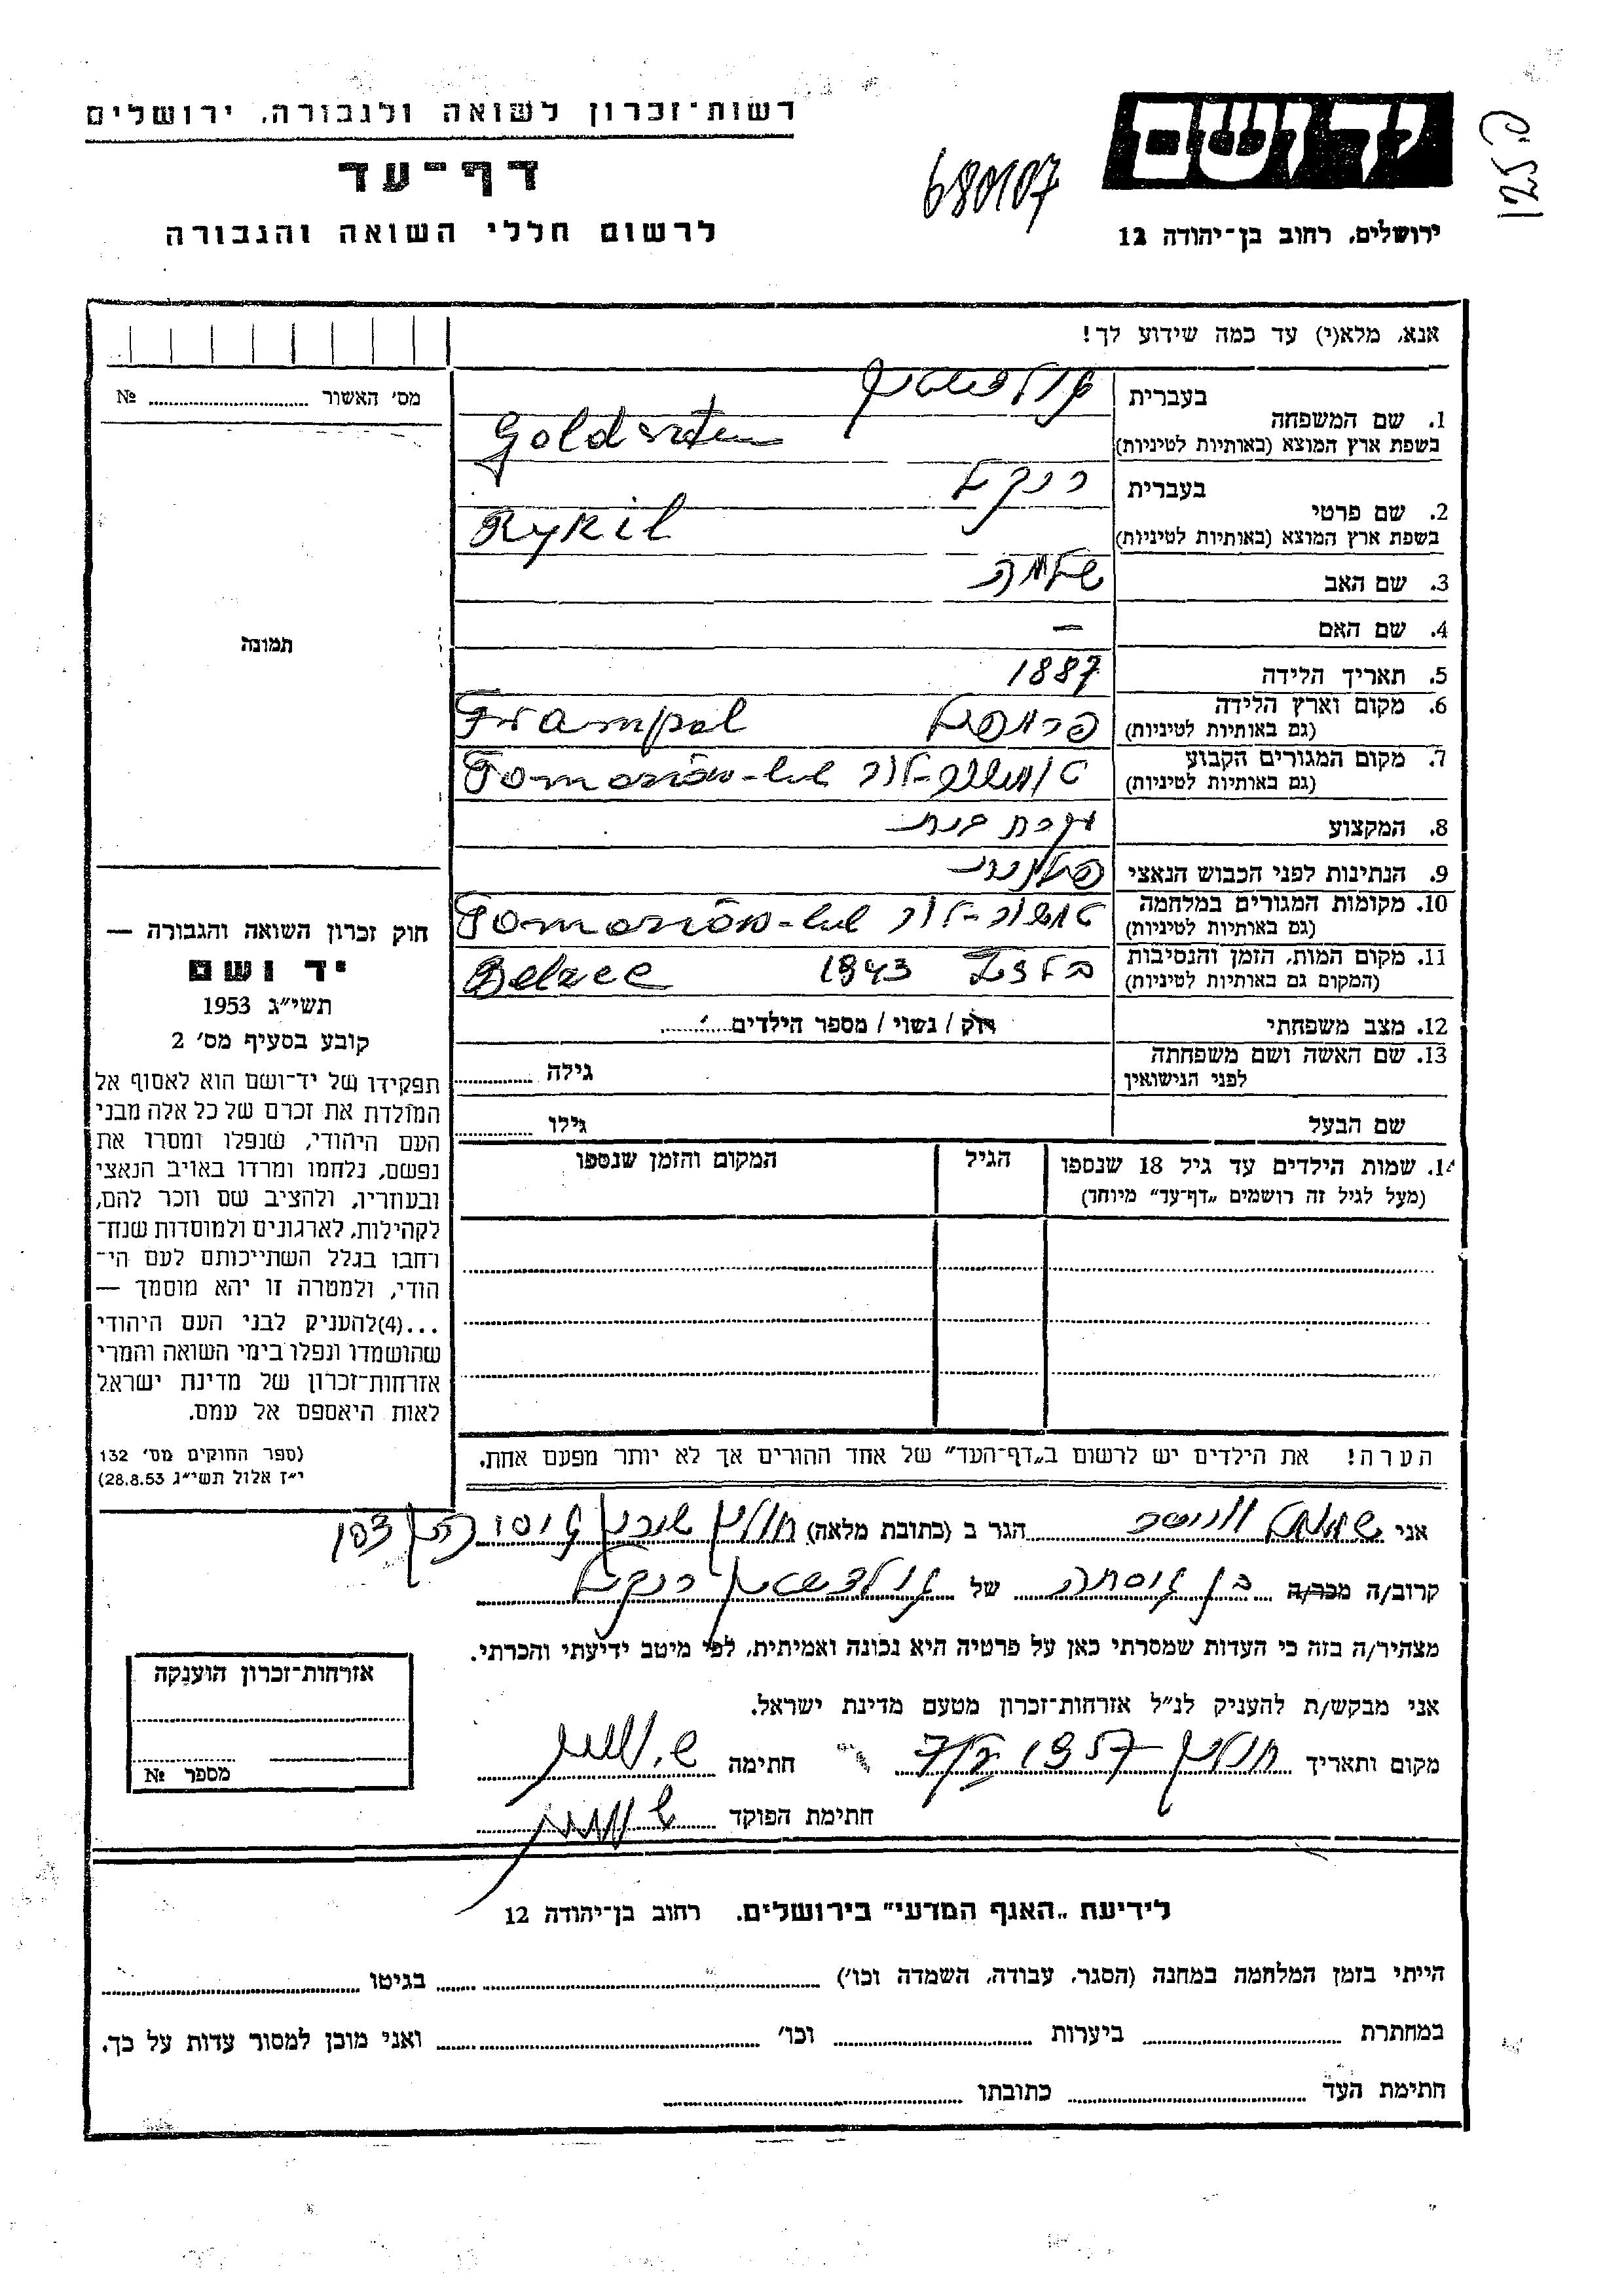 רשות-זכרון לשואה ולגבורה, ירושלים
דף-עד
לרשום חללי השואה והגבורה
680107
יד ושם
ירושלים, רחוב בן-יהודה 12
125
אנא, מלא(י) עד כמה שידוע לך!
מס' האשור № 
1. שם המשפחה בעברית גולדשטיין
בשפת ארץ המוצא (באותיות לטיניות) Goldsztein
2. שם פרטי בעברית
בשפת ארץ המוצא (באותיות לטיניות) Rykil
3. שם האב שלמה
4. שם האם –
5. תאריך הלידה 1887
6. מקום וארץ הלידה
(גם באותיות לטיניות) Frampol
7. מקום המגורים הקבוע
(גם באותיות לטיניות) טומשוב-לוב Tomaszów-lub
8. המקצוע עקרת בית
9. הנתינות לפני הכבוש הנאצי
10. מקומות המגורים במלחמה
(גם באותיות לטיניות) טומשוב-לוב Tomaszów-lub
11. מקום המות, הזמן והנסיבות
(המקום גם באותיות לטיניות) 1943 Belzec
12. מצב משפחתי רוק / נשוי / מספר הילדים
13. שם האשה ושם משפחתה
לפני הנישואין גילה
שם הבעל גילו
14. שמות הילדים עד גיל 18 שנספו הגיל המקום והזמן שנספו
(מעל לגיל זה רושמים „דף-עד" מיוחד)
הערה! את הילדים יש לרשום ב„דף-העד" של אחד ההורים אך לא יותר מפעם אחת.
תמונה
חוק זכרון השואה והגבורה —
יד ושם
תשי"ג 1953
קובע בסעיף מס' 2
תפקידו של יד-ושם הוא לאסוף אל
המולדת את זכרם של כל אלה מבני
העם היהודי, שנפלו ומסרו את
נפשם, נלחמו ומרדו באויב הנאצי
ובעוזריו, ולהציב שם וזכר להם,
לקהילות, לארגונים ולמוסדות שנח-
רחבו בגלל השתייכותם לעם הי-
הודי, ולמטרה זו יהא מוסמך —
...(4)להעניק לבני העם היהודי
שהושמדו ונפלו בימי השואה והמרי
אזרחות-זכרון של מדינת ישראל
לאות היאספם אל עמם.
(ספר החוקים מס' 132
י"ז אלול תשי"ג 28.8.53)
אני שמואל הגר ב (כתובת מלאה) חולון שיכון
קרוב/ה מכר/ה בן של גולדשטיין
מצהיר/ה בזה כי העדות שמסרתי כאן על פרטיה היא נכונה ואמיתית, לפי מיטב ידיעתי והכרתי.
אני מבקש/ת להעניק לנ"ל אזרחות-זכרון מטעם מדינת ישראל.
מקום ותאריך חולון 1957 חתימה
חתימת הפוקד
אזרחות-זכרון הוענקה
מספר №
לידיעת „האגף המדעי" בירושלים. רחוב בן-יהודה 12
הייתי בזמן המלחמה במחנה (הסגר, עבודה, השמדה וכו') בגיטו
במחתרת ביערות וכו' ואני מוכן למסור עדות על כך.
חתימת העד כתובתו